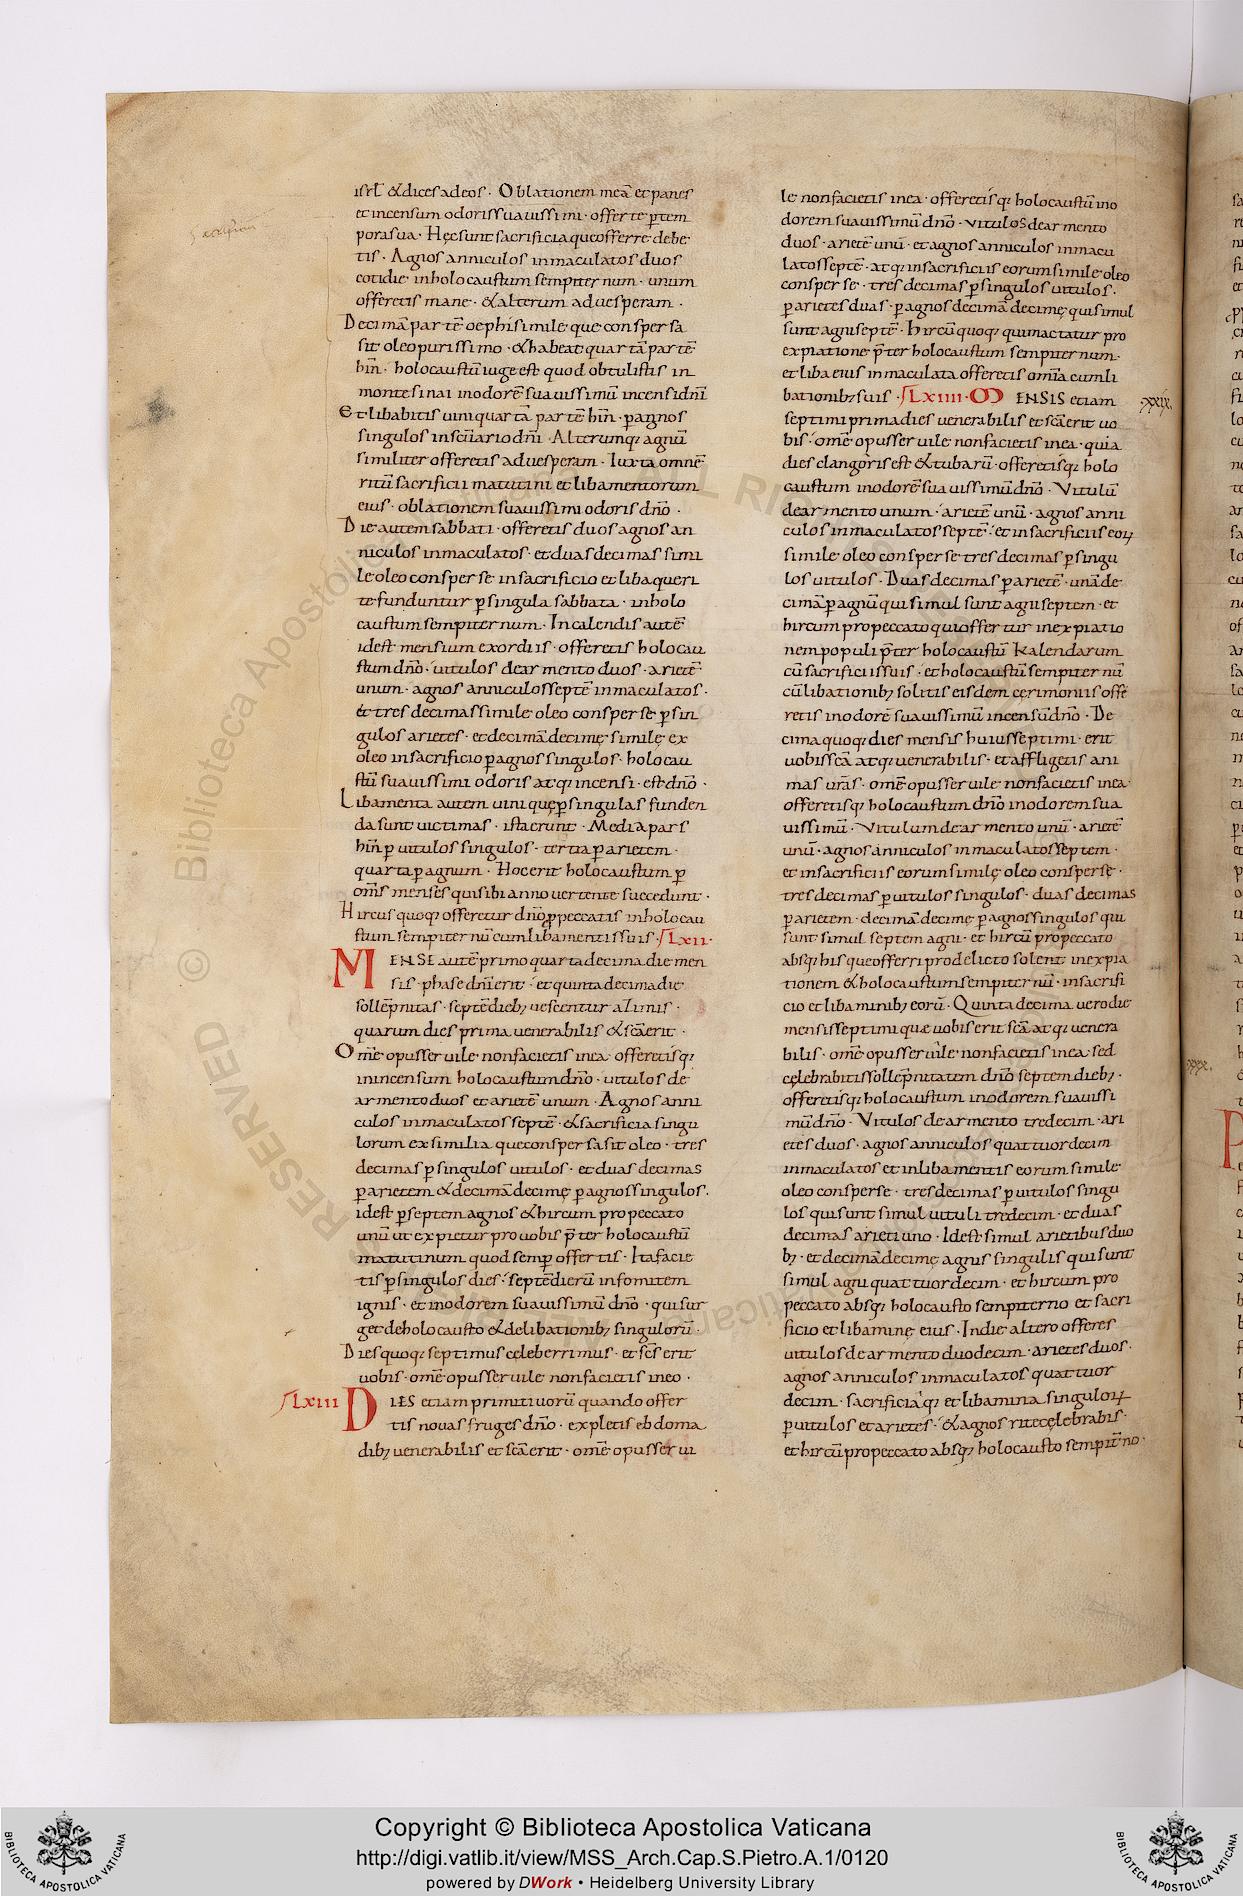 isrł &dices ad eos · Oblationem meā et panes
et incensum odoris suauissimi · offerte ꝑtem
pora sua · Hęc sunt sacrificia que offerre debe
tis · Agnos anniculos inmaculatos duos
cotidie inholocaustum sempiternum · unum
offeretis mane · & alterum aduesperam ·
Decimā partē oephi simile que consper sa
sit oleo purissimo · & habeat quartā partē
hin · holocaustū iuge est quod obtulistis in
monte sinai inodorē suauissimū incensi dn̄i
Et libabitis uini quartā partē hin · ꝑ agnos
singulos insc̄uario dn̄i · Alterumq; agnū
similiter offeretis aduesperam · Iuxta omnē
ritū sacrificii matutini et libamentorum
eius · oblationem suauissimi odoris dn̄o ·
Die autem sabbati · offeretis duos agnos an
niculos inmaculatos · et duas decimas simi
le oleo consperse insacrificio et liba que ri
te funduntur ꝑ singula sabbata · inholo
caustum sempiternum · In calendis autē
id est mensium exordiis · offeretis holocau
stum dn̄o · uitulos dearmento duos · arietē
unum · agnos anniculos septē inmaculatos ·
et tres decimas simile oleo consperse ꝑ sin
gulos arietes · et decimā decimę similę ex
oleo insacrificio ꝑ agnos singulos · holocau
stū suauissimi odoris atq; incensi · est dn̄o ·
Libamenta autem uini quę ꝑ singulas funden
da sunt uictimas · ista erunt · Media pars
hin ꝑ uitulos singulos · tertia ꝑ arietem ·
quarta ꝑ agnum · Hoc erit holocaustum ꝑ
om̄s menses qui sibi anno uertente succedunt ·
Hircus quoq; offeretur dn̄o ꝓ peccatis inholocau
stum sempiternū cum libamentis suis · Lxii·
MENSE autē primo quartadecima die men
sis · phase dn̄i erit · et quintadecima die
sollēpnitas · septē dieb; uescentur azimis ·
quarum dies prima uenerabilis & sc̄a erit ·
Om̄e opus seruile non facietis inea · offeretisq;
inincensum holocaustum dn̄o · uitulos de
armento duos et arietē unum · Agnos anni
culos inmaculatos septē · & sacrificia singu
lorum ex similia que conspersa sit oleo · tres
decimas ꝑ singulos uitulos · et duas decimas
ꝑ arietem & decimā decimę ꝑ agnos singulos ·
id est ꝑ septem agnos & hircum pro peccato
unū ut expietur pro uobis p̄ter holocaustū
matutinum quod semꝑ offertis · Ita facie
tis ꝑ singulos dies · septē dierū infomitem
ignis · et inodorem suauissimū dn̄o · qui sur
get deholocausto & delibationib; singulorū ·
Dies quoq; septimus celeberrimus · et sc̄s erit
uobis · om̄e opus seruile non facietis ineo ·
Lxiii DIES etiam primitiuorū quando offer
tis nouas fruges dn̄o · expletis ebdoma
dib; uenerabilis et sc̄a erit · om̄e opus serui
le non facietis inea · offeretisq; holocaustū ino
dorem suauissimū dn̄o · uitulos dearmento
duos · arietē unū · et agnos anniculos inmacu
latos septē · atq; insacrificiis eorum simile oleo
consperse · tres decimas ꝑ singulos uitulos ·
ꝑ arietes duas · ꝑ agnos decimā decimę qui simul
sunt agni septē · hircū quoq; qui mactatur pro
expiatione p̄ter holocaustum sempiternum ·
et liba eius inmaculata offeretis om̄ia cum li
bationib; suis · Lxiiii · MENSIS etiam
xxix.
septimi prima dies uenerabilis et sc̄a erit uo
bis · om̄e opus seruile non facietis inea · quia
dies clangoris est & tubarū · offeretisq; holo
caustum inodorē suauissimū dn̄o · Vitulū
dearmento unum · arietē unū · agnos anni
culos inmaculatos septē · et insacrificiis eoꝝ
simile oleo consperse tres decimas ꝑ singu
los uitulos · Duas decimas ꝑ arietē · unā de
cimā ꝑ agnū qui simul sunt agni septem · et
hircum pro peccato qui offertur inexpiatio
nem populi p̄ter holocaustū kalendarum
cū sacrificiis suis · et holocaustū sempiternū
cū libationib; solitis eisdem cęrimoniis offe
retis inodorē suauissimū incensū dn̄o · De
cima quoq; dies mensis huius septimi · erit
uobis sc̄a atq; uenerabilis · et affligetis ani
mas ur̄as · om̄e opus seruile non facietis inea ·
offeretisq; holocaustum dn̄o inodorem sua
uissimū · Vitulum dearmento unū · arietē
unū · agnos anniculos inmaculatos septem ·
et insacrificiis eorum similę oleo consperse ·
tres decimas ꝑ uitulos singulos · duas decimas
ꝑ arietem · decimā decimę ꝑ agnos singulos qui
sunt simul septem agni · et hircū pro peccato
absq; his que offerri pro delicto solent inexpia
tionem & holocaustum sempiternū · insacrifi
cio et libaminib; eorū · Quinta decima uero die
mensis septimi quæ uobis erit sc̄a atq; uenera
bilis · om̄e opus seruile non facietis inea · sed
celebrabitis sollēpnitatem dn̄o septem dieb; ·
offeretisq; holocaustum inodorem suauissi
mū dn̄o · Vitulos dearmento tredecim · ari
etes duos · agnos anniculos quattuordecim
inmaculatos et inlibamentis eorum simile
oleo consperse · tres decimas ꝑ uitulos singu
los qui sunt simul uituli tredecim · et duas
decimas arieti uno · Id est simul arietibus duo
b; · et decimā decimę agnis singulis qui sunt
simul agni quattuordecim · et hircum pro
peccato absq; holocausto sempiterno et sacri
ficio et libaminę eius · Indie altero offeres
uitulos dearmento duodecim · arietes duos ·
agnos anniculos inmaculatos quattuor
decim · sacrificiaq; et libamina singuloꝝ
ꝑ uitulos et arietes · & agnos rite celebrabis ·
et hircū pro peccato absq; holocausto sempit̄no ·
xxx.
Copyright © Biblioteca Apostolica Vaticana
http://digi.vatlib.it/view/MSS_Arch.Cap.S.Pietro.A.1/0120
powered by DWork • Heidelberg University Library